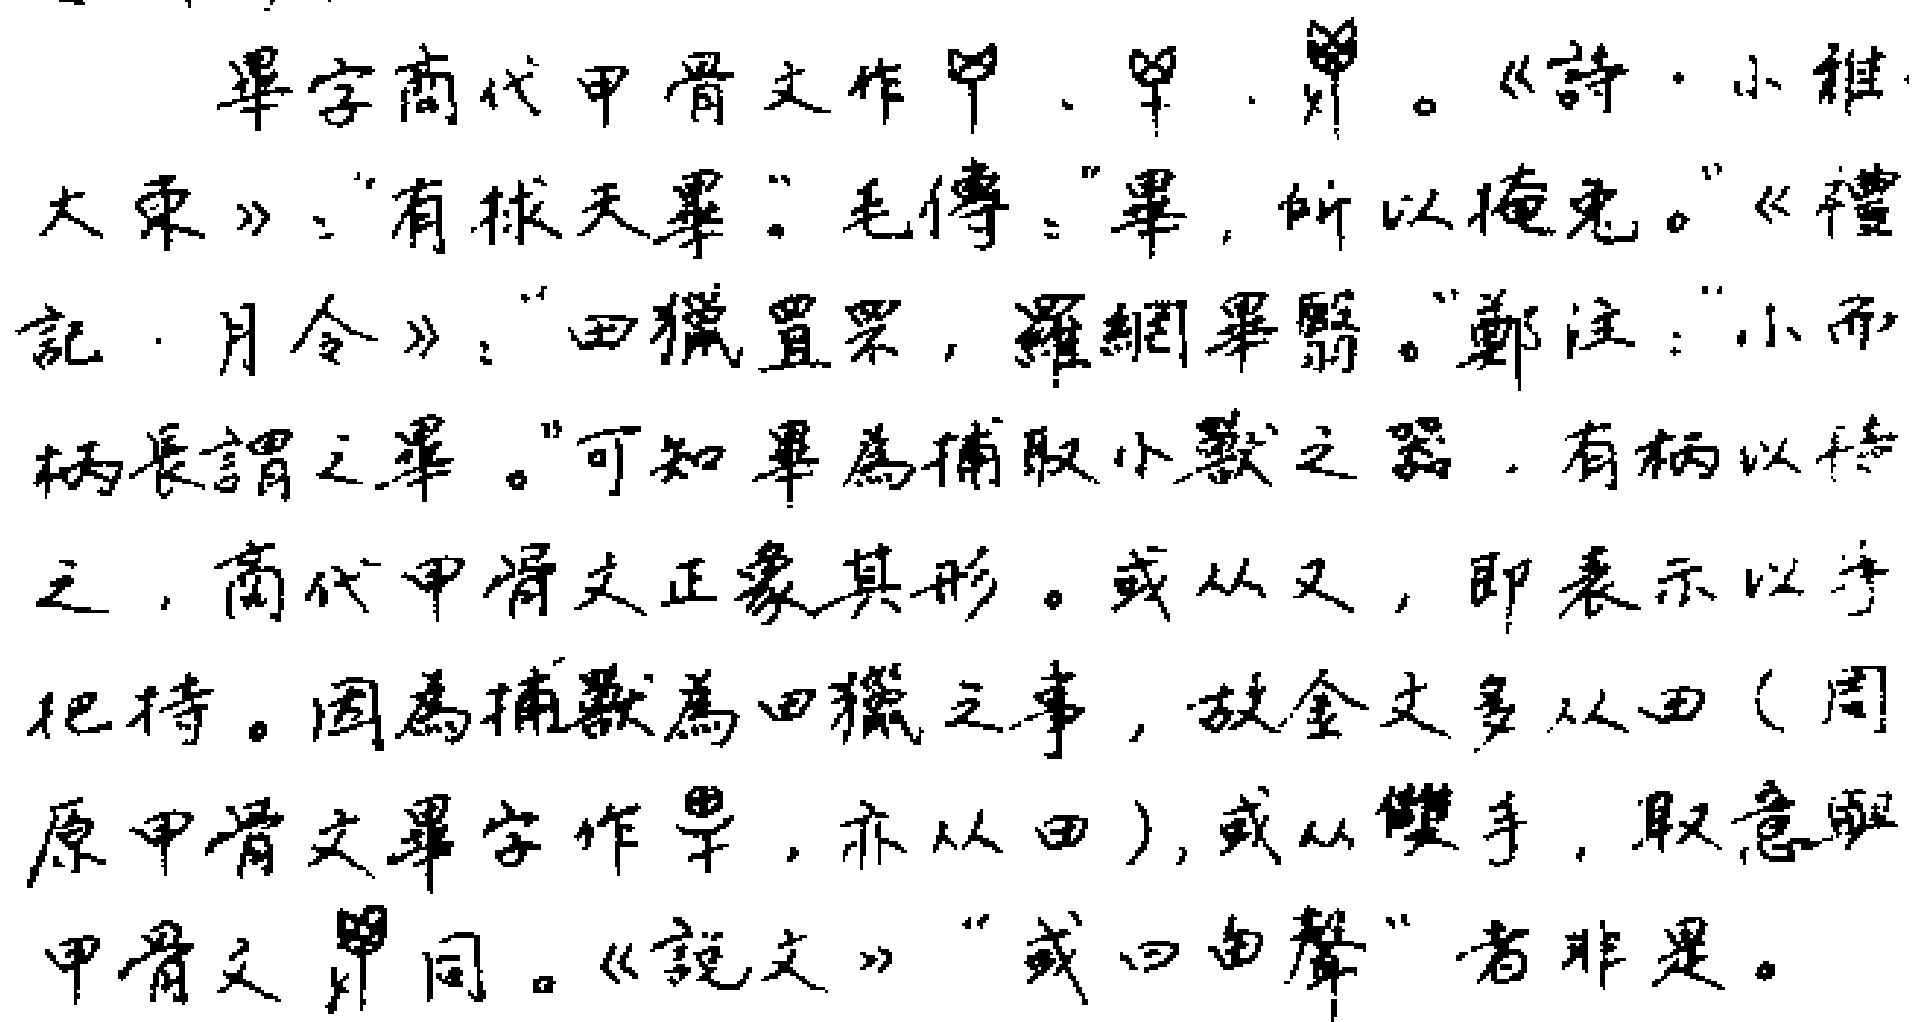 畢字商代甲骨文作、、。《詩·小雅·
大東》："有捄天畢。"毛傳："畢，所以掩兔。"《禮
記·月令》："田獵罝罘，羅網畢翳。"鄭注："小而
柄長謂之畢。"可知畢為捕取小獸之器，有柄以持
之，商代甲骨文正象其形。或从又，即表示以手
把持。因為捕獸為田獵之事，故金文多从田（周
原甲骨文畢字作，亦从田），或从雙手，取意與
甲骨文同。《說文》"或曰由聲"者非是。